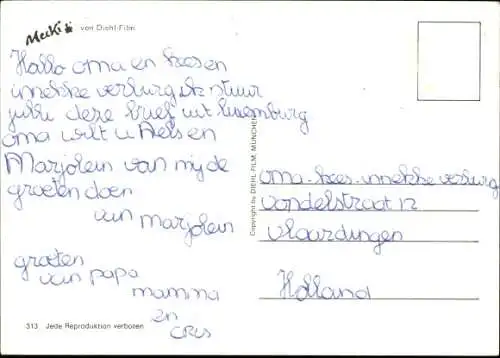 Mecki von Diehl-Film
Hallo oma en kees en
inneke verburg ik stuur
jullie deze brief uit luxemburg
oma wilt u Nelsen
Marjolein van mij de
groeten doen
van marjolein
groeten
van papa
mamma
en
cris
313 Jede Reproduktion verboten
Copyright by DIEHL-FILM, MÜNCHEN
oma. kees. inneke verburg
vondelstraat 12
vlaardingen
Holland